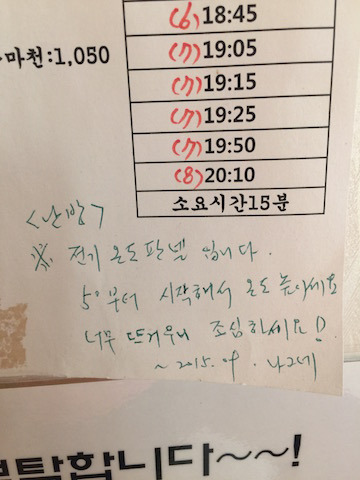 (6) 18:45
마천:1,050
(7) 19:05
(7) 19:15
(7) 19:25
(7) 19:50
(8) 20:10
소요시간15분
<난방>
※. 전기 온도판넬 입니다.
5°부터 시작해서 온도 높이세요
너무 뜨거우니 조심하세요!
~ 2015. 나그네
탁합니다~~!